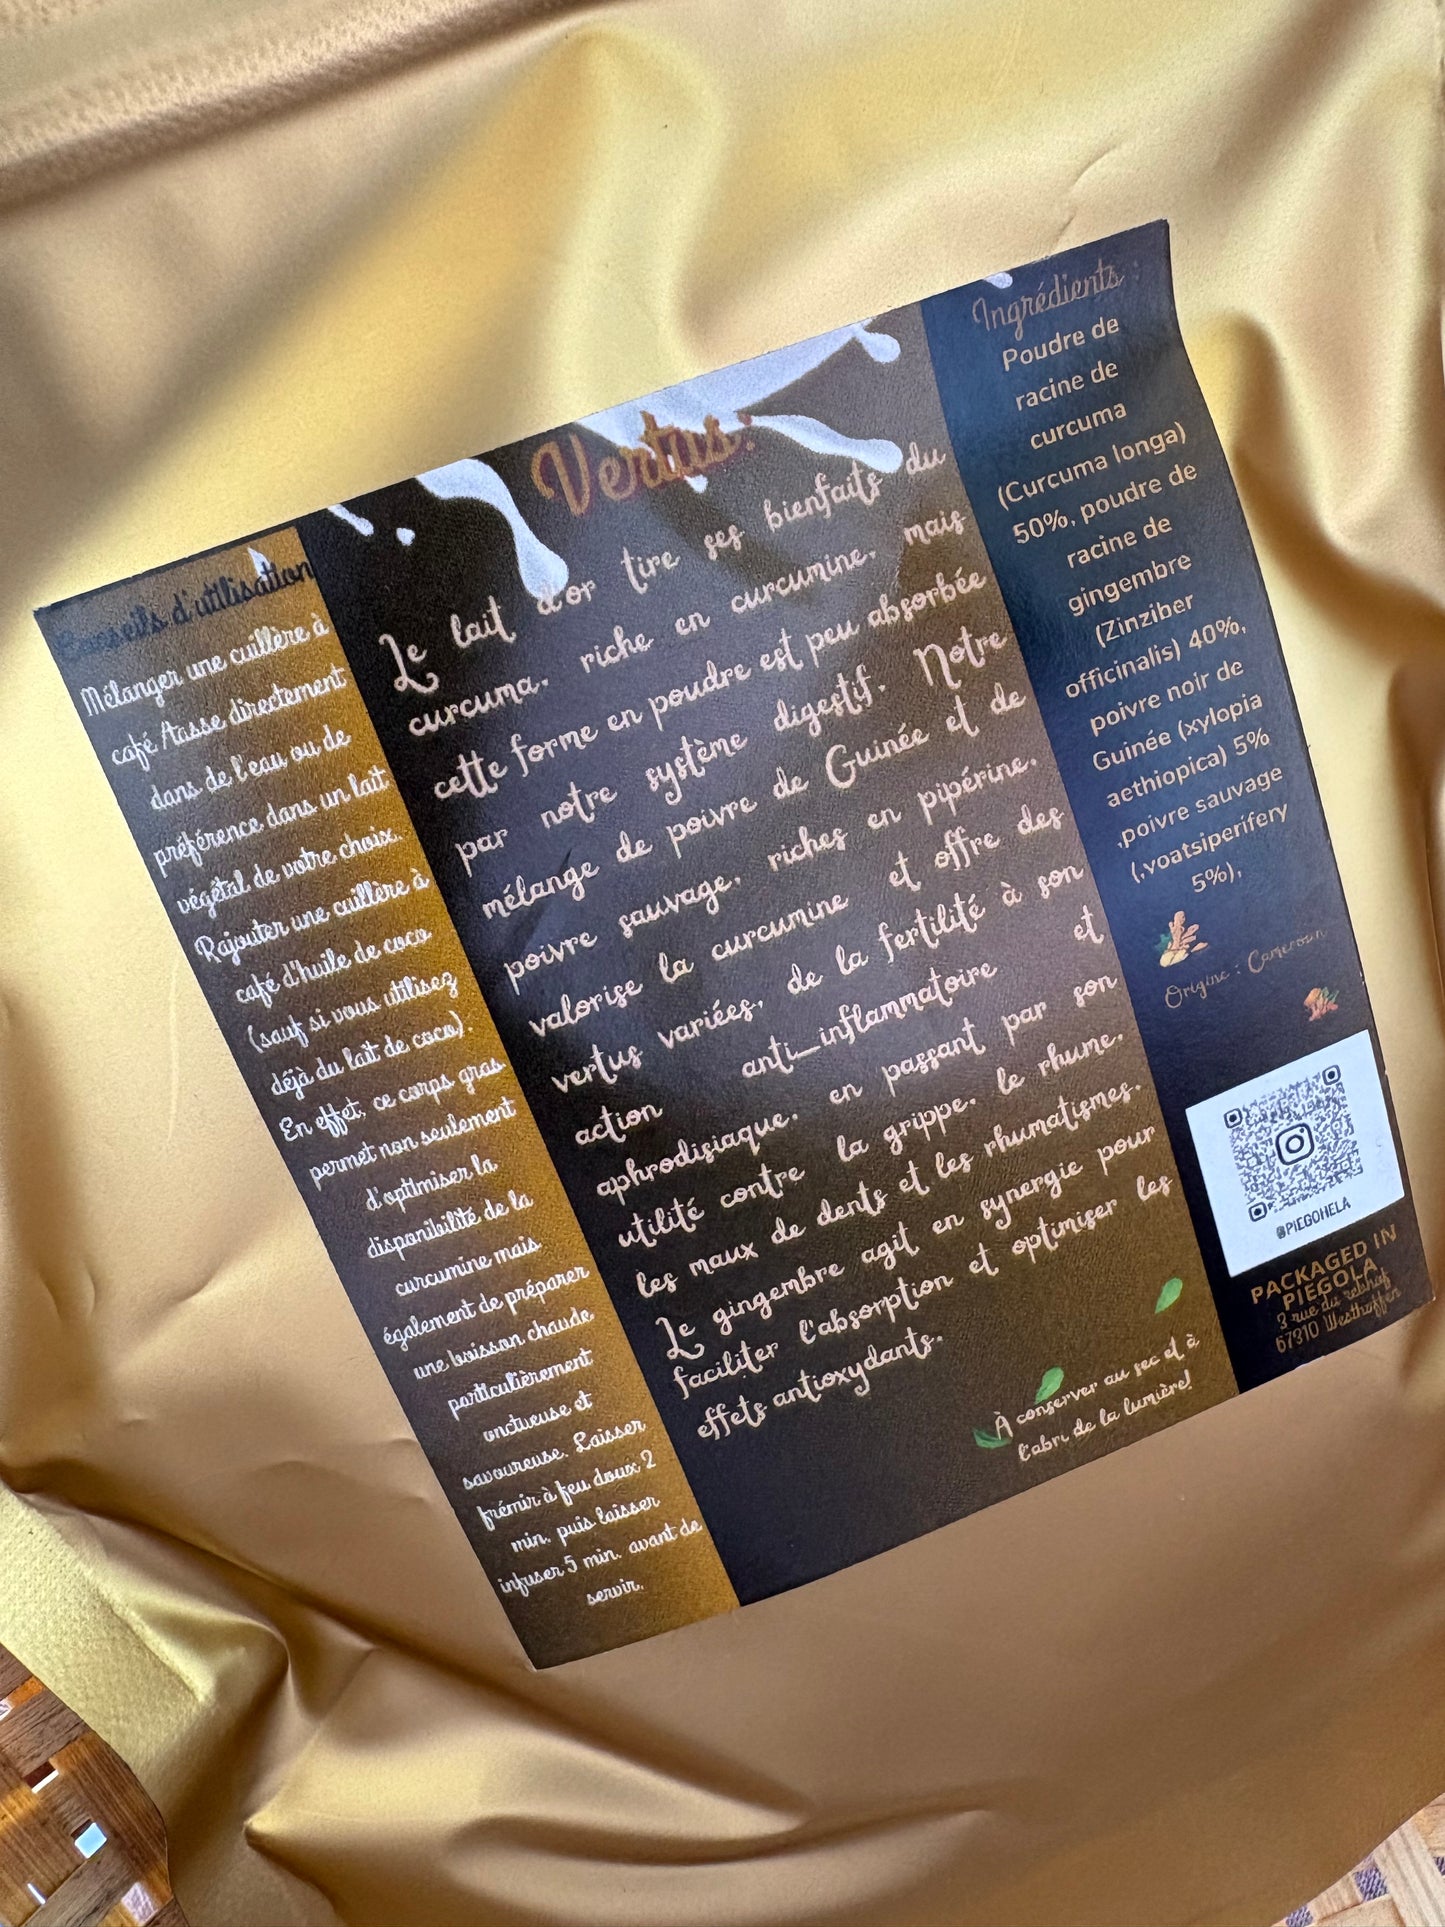 Conseils d'utilisation
Mélanger une cuillère à
café /tasse directement
dans de l'eau ou de
préférence dans un lait
végétal de votre choix.
Rajouter une cuillère à
café d'huile de coco
(sauf si vous utilisez
déjà du lait de coco).
En effet, ce corps gras
permet non seulement
d'optimiser la
disponibilité de la
curcumine mais
également de préparer
une boisson chaude
particulièrement
onctueuse et
savoureuse. Laisser
frémir à feu doux 2
min. puis laisser
infuser 5 min. avant de
servir.
Vertus:
Le lait d'or tire ses bienfaits du
curcuma, riche en curcumine, mais
cette forme en poudre est peu absorbée
par notre système digestif. Notre
mélange de poivre de Guinée et de
poivre sauvage, riches en pipérine,
valorise la curcumine et offre des
vertus variées, de la fertilité à son
action anti_inflammatoire et
aphrodisiaque, en passant par son
utilité contre la grippe, le rhume,
les maux de dents et les rhumatismes.
Le gingembre agit en synergie pour
faciliter l'absorption et optimiser les
effets antioxydants.
À conserver au sec et à
l'abri de la lumière!
Ingrédients :
Poudre de
racine de
curcuma
(Curcuma longa)
50%, poudre de
racine de
gingembre
(Zinziber
officinalis) 40%,
poivre noir de
Guinée (xylopia
aethiopica) 5%
,poivre sauvage
(,voatsiperifery
5%),
Origine : Cameroun
@PIEGONELA
PACKAGED IN
PIEGOLA
3 rue du rebhuf
67310 Westhoffen